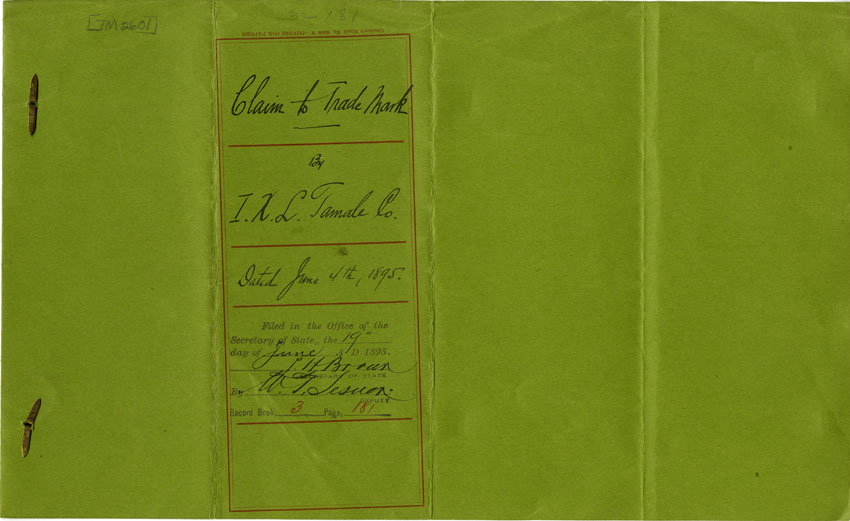 TM2601
3-181
Claim to Trade Mark
By
I.X.L. Tamale Co.
Dated June 4th, 1895.
Filed in the Office of the
Secretary of State, the 19"
day of June A D 1895.
L. H. Brown
SECRETARY OF STATE
By W. T. Sesnon.
DEPUTY
Record Book, 3 Page, 181